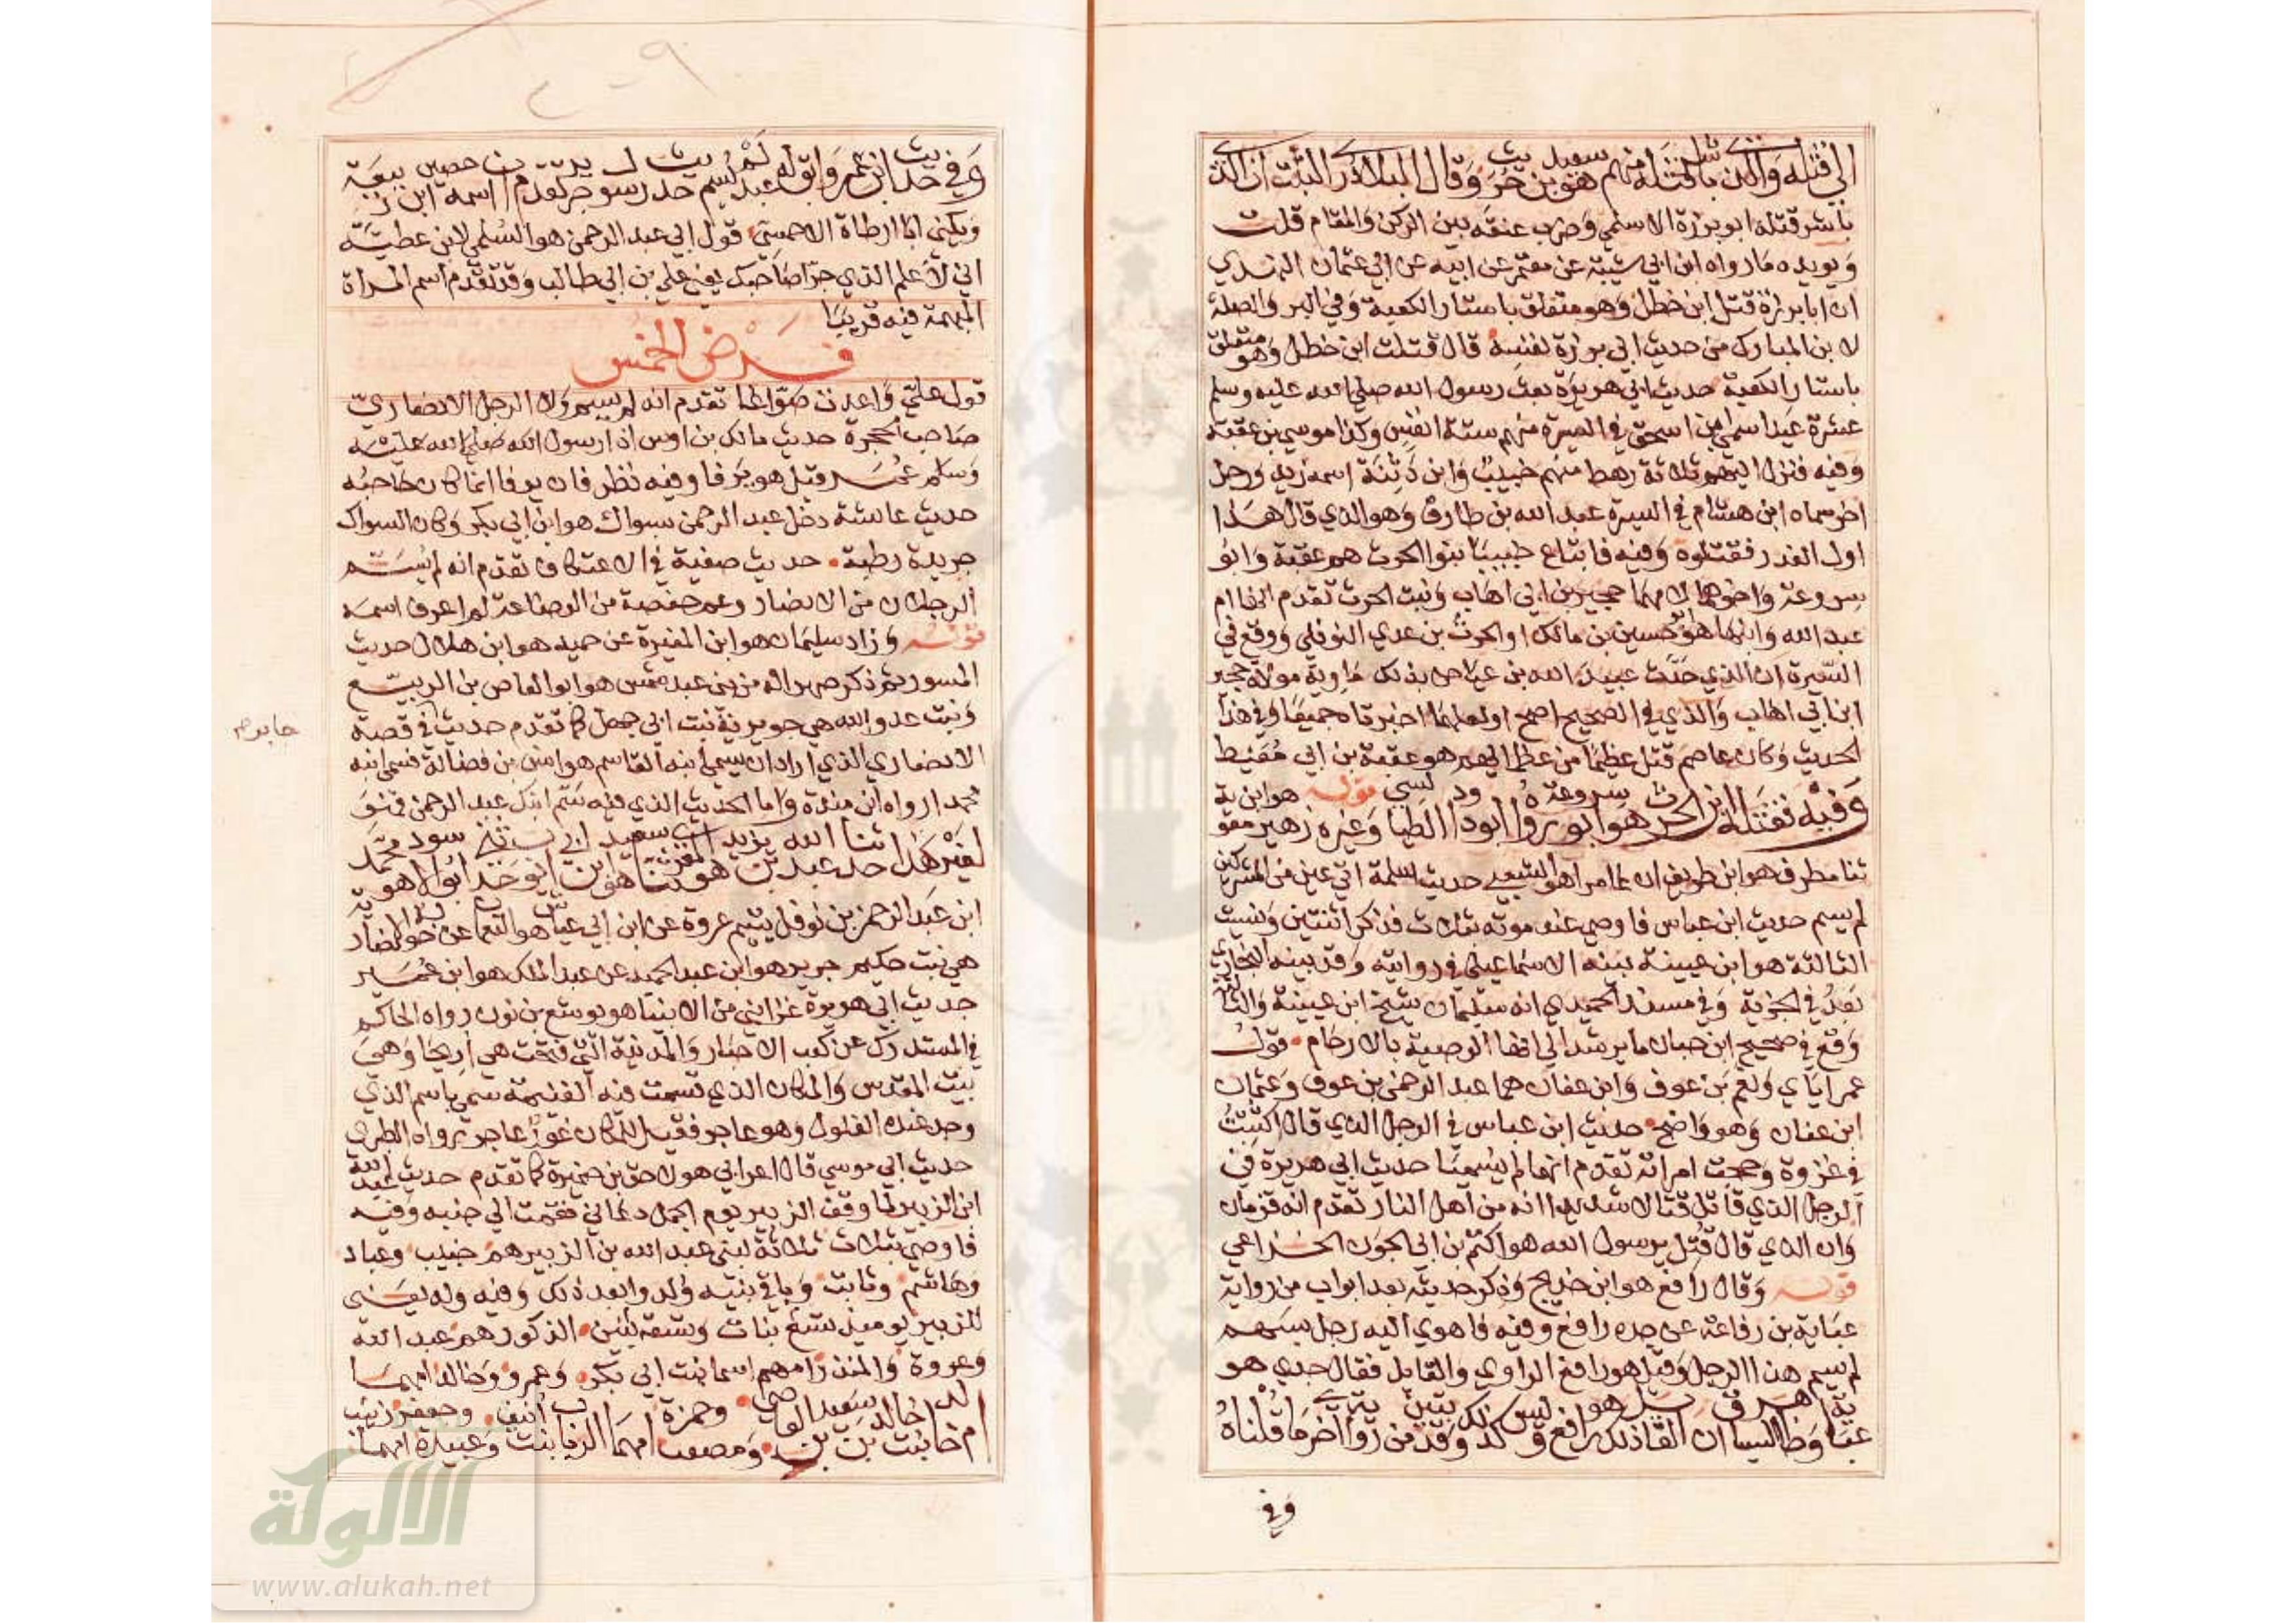 الى قتله والذي باشر قتله منهم هو سعيد بن حريث وقال البلاذري الثبت ان الذي
باشر قتله ابو برزة الاسلمي وضرب عنقه بين الركن والمقام قلت
ويويده ما رواه ابن ابي شيبة عن معتمر عن ابيه عن ابي عثمان النهدي
ان ابا برزة قتل ابن خطل وهو متعلق باستار الكعبة وفي البر والصلة
لابن المبارك من حديث ابي برزة نفسه قال قتلت ابن خطل وهو متعلق
باستار الكعبة حديث ابي هريرة بعث رسول الله صلى الله عليه وسلم
عشرة عينا سمى ابن اسحق في السيرة منهم ستة انفس وكذا موسى بن عقبة
وفيه فنزل اليهم ثلاثة رهط منهم خبيب وابن دثنة اسمه زيد ورجل
اخر سماه ابن هشام في السيرة عبد الله بن طارق وهو الذي قال هذا
اول الغدر فقتلوه وفيه فابتاع خبيبا بنوا الحرث هم عقبة وابو
سروعة واخوهما لامهما حجير بن ابي اهاب وبنت الحرث تقدم انها ام
عبد الله وابنها هو ابو حسين بن مالك او الحرث بن عدي النوفلي ووقع في
السيرة ان الذي حدث عبيد الله بن عياض بذلك ماوية مولاة حجير
ابن ابي اهاب والذي في الصحيح اصح او لعلهما اخبرتاه جميعا وفي هذا
الحديث وكان عاصم قتل عظيما من عظمائهم هو عقبة بن ابي معيط
وفيه فقتله ابن الحرث هو ابو سروعة ابو داود الطيالسي قوله وغيره زهير هو ابن معوية
ثنا مطرف هو ابن طريف ان عامرا هو الشعبي حديث سلمة اتى عين من المشركين
لم يسم حديث ابن عباس فاوصى عند موته بثلاث فذكر اثنتين ونسيت
الثالثة هو ابن عيينة بينه الاسماعيلي في روايته وقد بينه البخاري
بعد في الجزية وفي مسند الحميدي انه سليمان شيخ ابن عيينة والثالثة
وقع في صحيح ابن حبان ما يرشد الى انها الوصية بالارحام قول
عمر اياي ونعم بن عوف وابن عفان هما عبد الرحمن بن عوف وعثمان
ابن عفان وهو واضح حديث ابن عباس في الرجل الذي قال اكتتبت
في غزوة وحجت امراته تقدم انهما لم يسميا حديث ابي هريرة في
الرجل الذي قاتل قتالا شديدا انه من اهل النار تقدم انه قزمان
وان الذي قال قتل يرسول الله هو اكتم بن ابي الجون الخزاعي
قوله وقال رافع هو ابن خديج وذكر حديثه بعد ابواب من رواية
عباية بن رفاعة عن جده رافع وفيه فاهوى اليه رجل بسهم
لم يسم هذا الرجل وقيل هو رافع الراوي والقايل فقال جدي هو
عباية وظاهر السياق ان القايل ذلك هو رافع وليس كذلك وقد بين من رواية اخرى ما قلناه
وفي
وفي حديث ابن عمر
ويكنى ابا ارطاة الاحمسي قول ابي عبد الرحمن هو السلمي لابن عطية
اني لاعلم الذي جرا صاحبك يعني علي بن ابي طالب وقد تقدم اسم المراة
المبهمة فيه قريبا
فرض الخمس
قول علي واعدت صواغا تقدم انه لم يسم ولا الرجل الانصاري
صاحب الحجرة حديث مالك بن اوس اذا رسول الله صلى الله عليه
وسلم عمر قيل هو يرفا وفيه نظر فان يرفا انما كان حاجبه
حديث عائشة دخل عبد الرحمن بسواك هو ابن ابي بكر وكان السواك
جريدة رطبة حديث صفية في الاعتكاف تقدم انه لم يسم
الرجلان من الانصار وعم حفصة من الرضاعة لم اعرف اسمه
قوله وزاد سليمان هو ابن المغيرة عن حميد هو ابن هلال حديث
المسور ثم ذكر صهرا له من بني عبد شمس هو ابو العاص بن الربيع
وبنت عدو الله هي جويرية بنت ابي جهل كما تقدم حديث في قصة
جابر صح
الانصاري الذي اراد ان يسمي ابنه القاسم هو انس بن فضالة فسمى ابنه
محمدا رواه ابن مندة واما الحديث الذي فيه سم ابنك عبد الرحمن فهو
لغير هذا
ابن عبد الرحمن بن نوفل يتيم عروة عن ابن ابي عياش هو النعمان عن خولة الانصارية
هي بنت حكيم جرير هو ابن عبد الحميد عن عبد الملك هو ابن عمير
حديث ابي هريرة غزا نبي من الانبيا هو يوشع بن نون رواه الحاكم
في المستدرك عن كعب الاحبار والمدينة التي فتحت هي اريحا وهي
بيت المقدس والمكان الذي قسمت فيه الغنيمة سمي باسم الذي
وجد عنده الغلول وهو عاجر فقيل للمكان غور عاجر رواه الطبري
حديث ابي موسى قال اعرابي هو لاحق بن ضميرة كما تقدم حديث عبد الله
ابن الزبير لما وقف الزبير يوم الجمل دعاني فقمت الى جنبه وفيه
فاوصى بثلاث ثلاثة لبني عبد الله بن الزبير هم خبيب وعباد
وهاشم وثابت وباقي بنيه ولدوا بعد ذلك وفيه وله يعنى
للزبير يوميذ تسع بنات وتسعة بنين الذكور هم عبد الله
وعروة والمنذر امهم اسما بنت ابي بكر وعمرو وخالد امهما
ام خالد بنت خالد بن سعيد بن العاصي ومصعب وحمزة امهما الرباب بنت انيف وعبيدة وجعفر امهما زينب
الالوكة
www.alukah.net